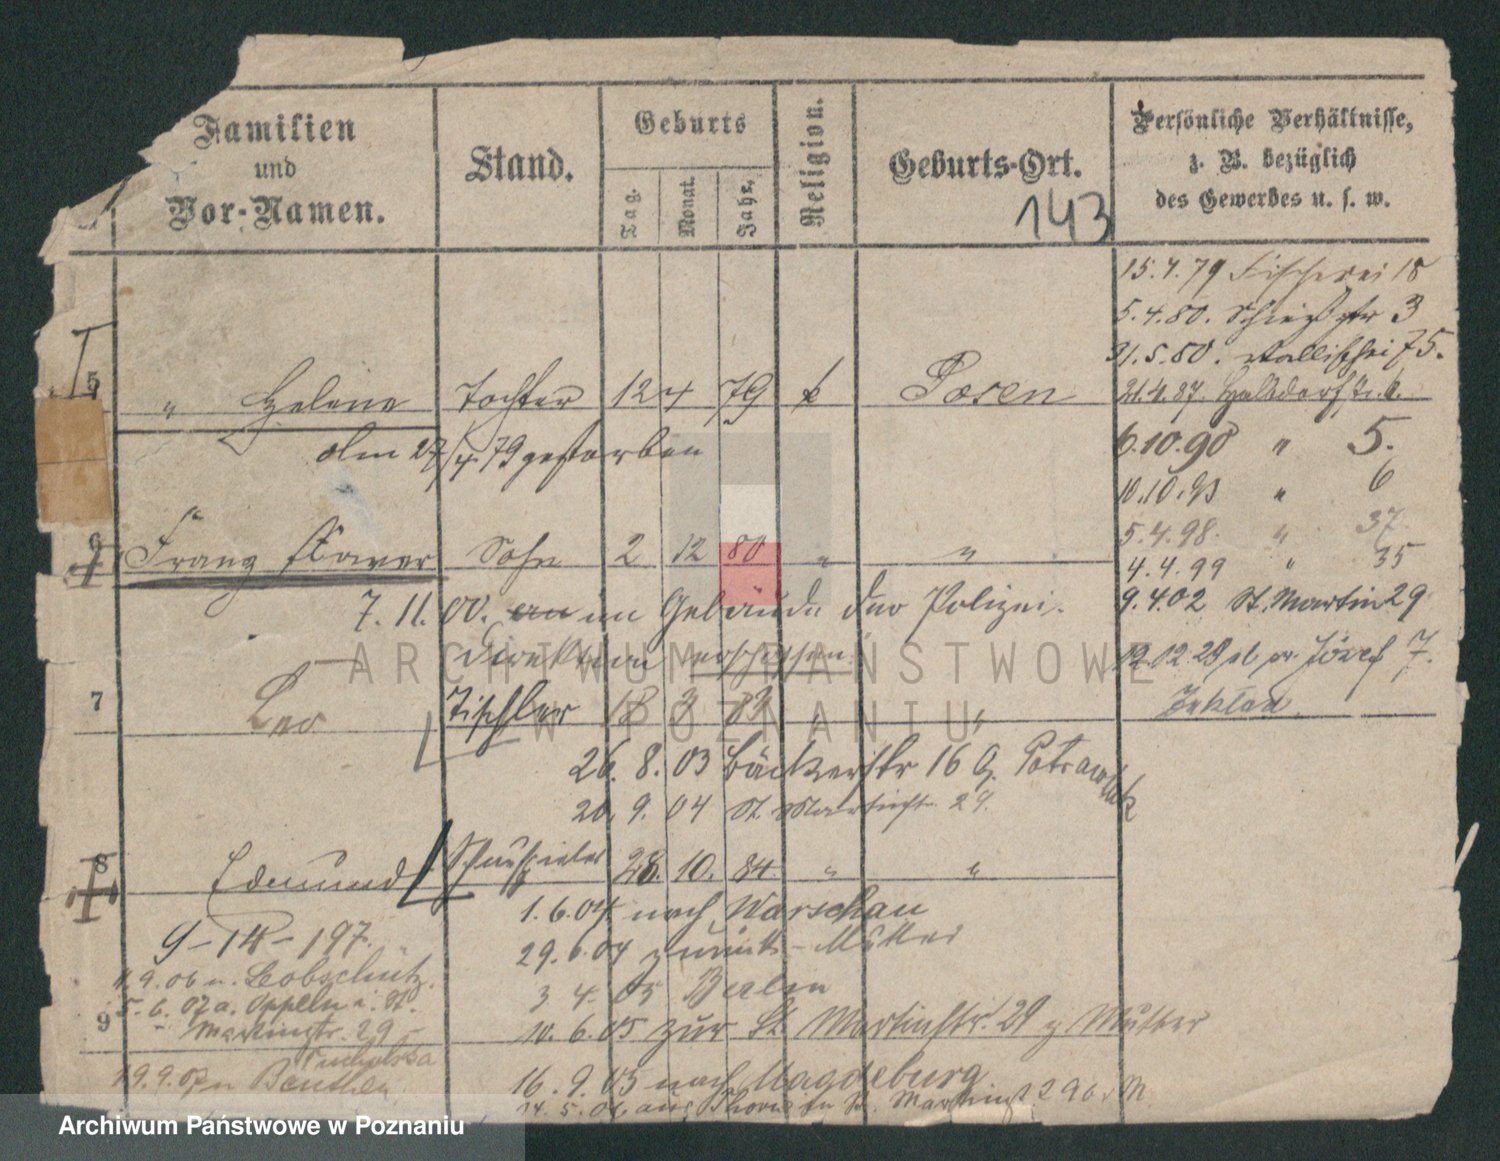 Familien
und
Vor-Namen.
Stand.
Geburts
Tag.
Monat.
Jahr.
Religion.
Geburts-Ort.
143
Persönliche Verhältnisse,
z. B. bezüglich
des Gewerbes u. s. w.
15.4.79 Fischerei 18
5.4.80. Schießstr 3
31.5.80. Wallischei 75.
5 " Helene Tochter 12 4 79 k Posen
21.4.87. Halbdorfstr. 6.
Am 27/4 79 gestorben
6.10.90 " 5.
10.10.93 " 6
5.4.98. " 37.
6 Franz Xaver Sohn 2 12 80 " "
4.4.99 " 35
7.11.00. an im Gebäude der Polizei-
9.4.02 St. Martin 29
Direktion erschossen.
12.02.29 Józef 7.
7 Leo Tischler 18 3 83 " "
26.8.03 Bäckerstr 16 b. Potrawiak
20.9.04 St. Martinstr. 29.
8 Edmund Schauspieler 28. 10. 84. " "
1.6.04 nach Warschau
9-14-197.
29.6.04 zurück - Mutter
1.9.06 n. Leobschütz.
3 4. 05 Berlin
5.6.07 a. Oppeln i. St.
9 Martinstr. 29
10.6.05 zur St. Martinstr. 29 z Mutter
19.9.07 n Beuthen
16.9.05 nach Magdeburg
14.5.06. aus Thorn St. Martinst 29 b. M.
ARCHIWUM PAŃSTWOWE
W POZNANIU
Archiwum Państwowe w Poznaniu